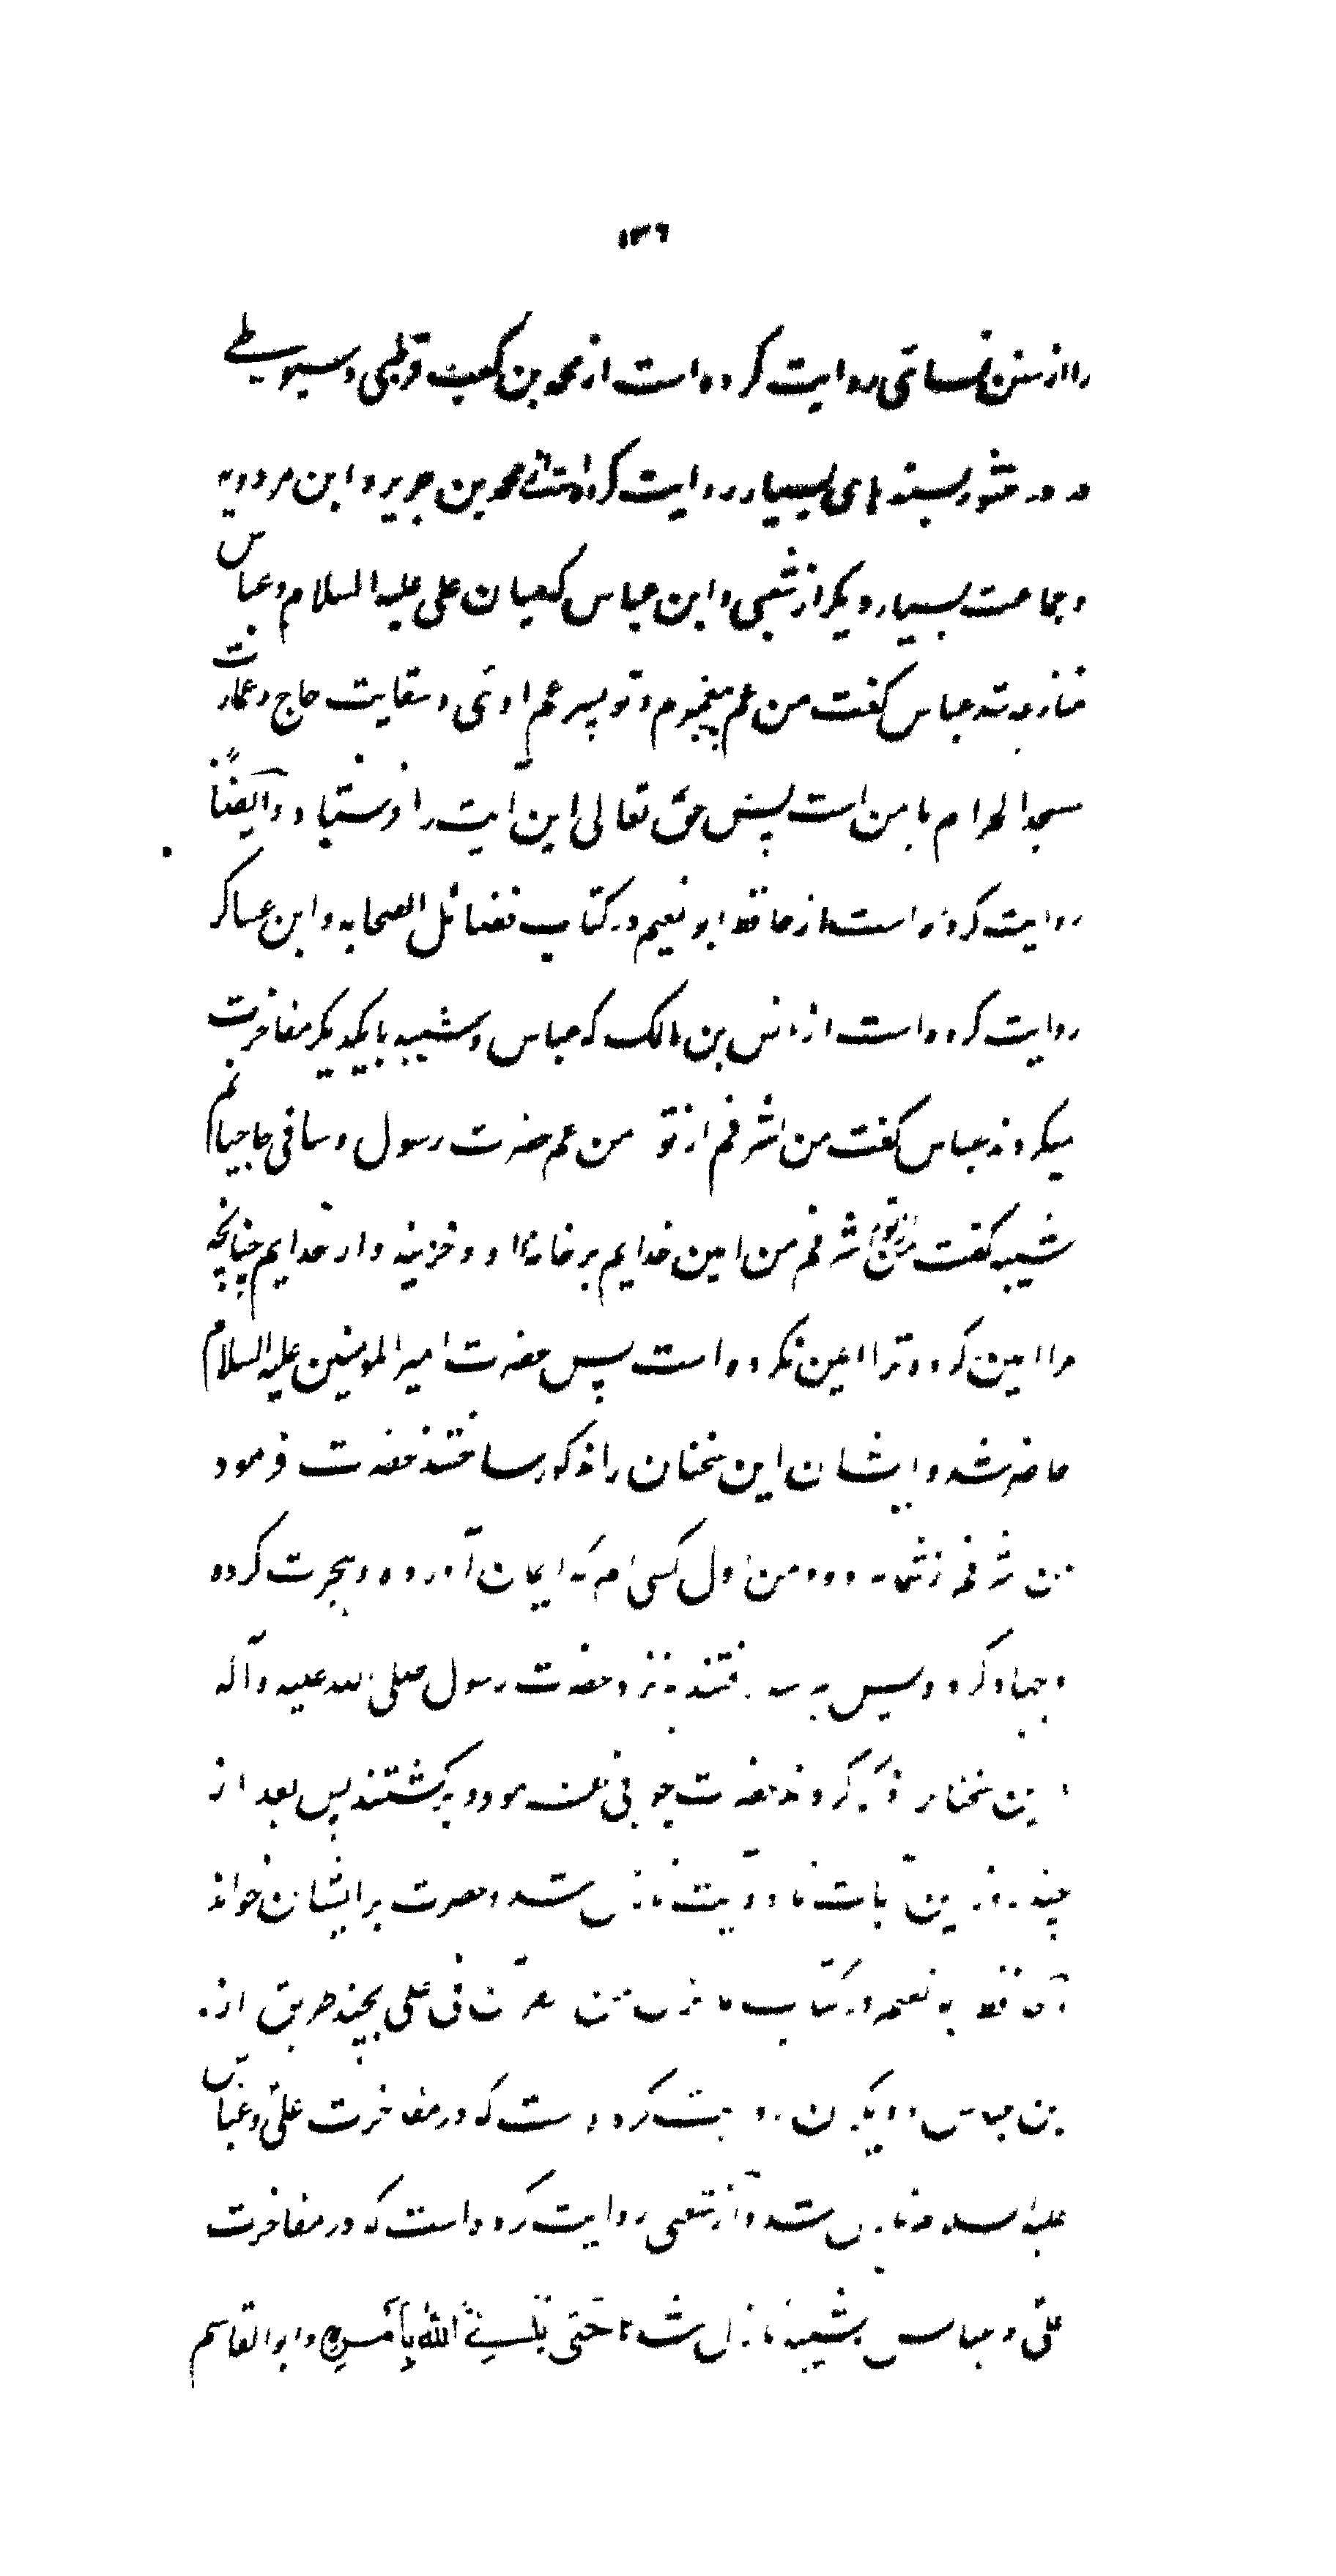 ۱۳۶
را از سنن نسائی روایت کرده است از محمد بن کعب قرظی و سیوطی
در در منثور بسندهای بسیار روایت کرده است از محمد بن جریر و ابن مردویه
و جماعت بسیار دیگر از شعبی و ابن عباس که میان علی علیه السلام و عباس
منازعه شد عباس گفت من عم پیغمبرم و تو پسر عم اوئی و سقایت حاج و عمارت
مسجد الحرام با من است پس حق تعالی این آیت را فرستاد و ایضاً
روایت کرده است از حافظ ابو نعیم در کتاب فضائل الصحابه و ابن عساکر
روایت کرده است از انس بن مالک که عباس و شیبه با یکدیگر مفاخرت
میکردند عباس گفت من اشرفم از تو من عم حضرت رسول و ساقی حاجیانم
شیبه گفت من از تو اشرفم من امین خدایم بر خانه او و خزینه دار خدایم چنانچه
مرا امین کرد و ترا امین نکرده است پس حضرت امیر المومنین علیه السلام
حاضر شد و ایشان این سخنان را مذکور ساختند حضرت فرمود
من اشرفم از شما هر دو و من اول کسی ام که ایمان آورده و هجرت کرده
و جهاد کرده پس هر سه رفتند به نزد حضرت رسول صلی الله علیه و آله
این سخنان ذکر کردند حضرت جوابی نفرمود و برگشتند پس بعد از
چند روز این آیات تا دو آیت نازل شد و حضرت بر ایشان خواند
و حافظ ابو نعیم در کتاب ما نزل من القرآن فی علی بچند طریق از
ابن عباس و دیگران روایت کرده است که در مفاخرت علی و عباس
علیه السلام نازل شد و از شعبی روایت کرده است که در مفاخرت
علی و عباس و شیبه نازل شد تا حَتَّى يَأْتِيَ اللهُ بِأَمْرِهِ و ابو القاسم